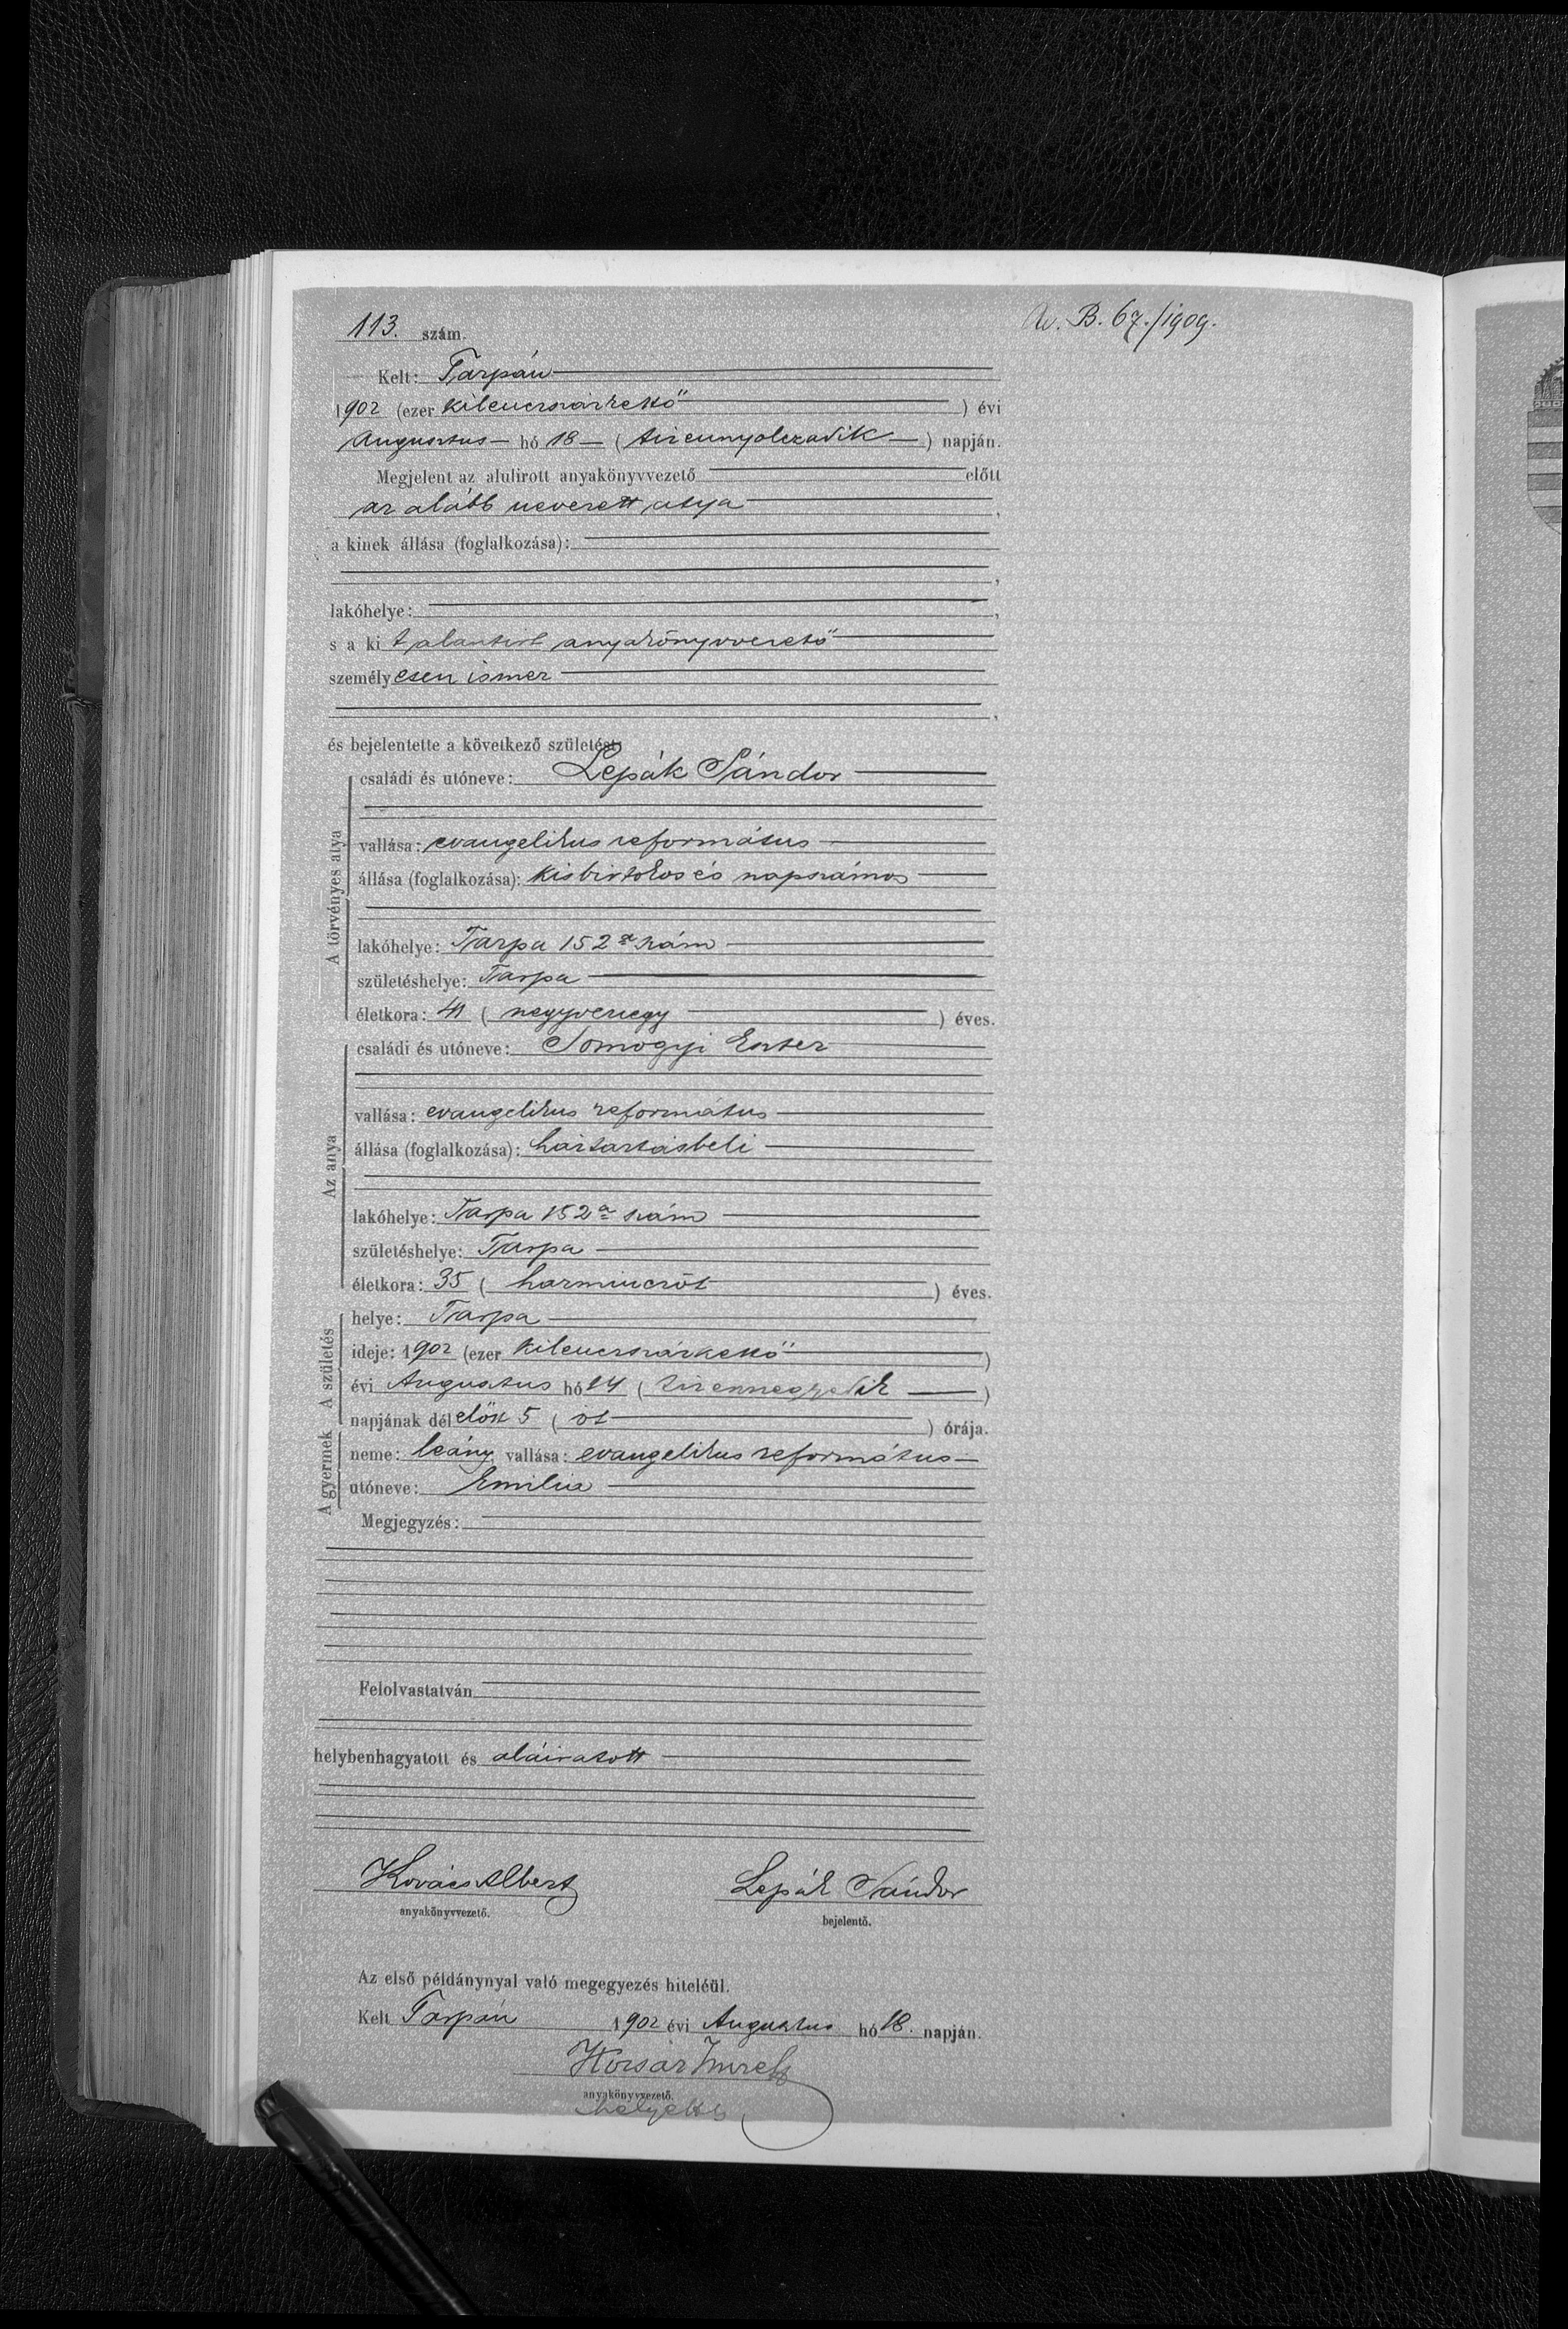 113. szám.
Av. B. 67./1909.
Kelt: Tarpán
1902 (ezer kilencszázkettő) évi
Augusztus hó 18 (tizennyolczadik) napján.
Megjelent az alulirott anyakönyvvezető előtt
az alább nevezett atya,
a kinek állása (foglalkozása):
lakóhelye:
s a kit alantirt anyakönyvvezető
személyesen ismer
és bejelentette a következő születést:
A törvényes atya
családi és utóneve: Lepák Sándor
vallása: evangelikus református
állása (foglalkozása): kisbirtokos és napszámos
lakóhelye: Tarpa 152 a szám
születéshelye: Tarpa
életkora: 41 (negyvenegy) éves.
Az anya
családi és utóneve: Somogyi Eszter
vallása: evangelikus református
állása (foglalkozása): háztartásbeli
lakóhelye: Tarpa 152 a szám
születéshelye: Tarpa
életkora: 35 (harminczöt) éves.
A születés
helye: Tarpa
ideje: 1902 (ezer kilencszázkettő)
évi Augusztus hó 14 (tizennegyedik)
napjának délelőtt 5 (öt) órája.
A gyermek
neme: leány vallása: evangelikus református
utóneve: Emilia
Megjegyzés:
Felolvastatván
helybenhagyatott és aláiratott
Kovács Albert
anyakönyvvezető.
Lepák Sándor
bejelentő.
Az első példánynyal való megegyezés hiteléül.
Kelt Tarpán 1902 évi Augusztus hó 18. napján.
anyakönyvvezető.
helyettes